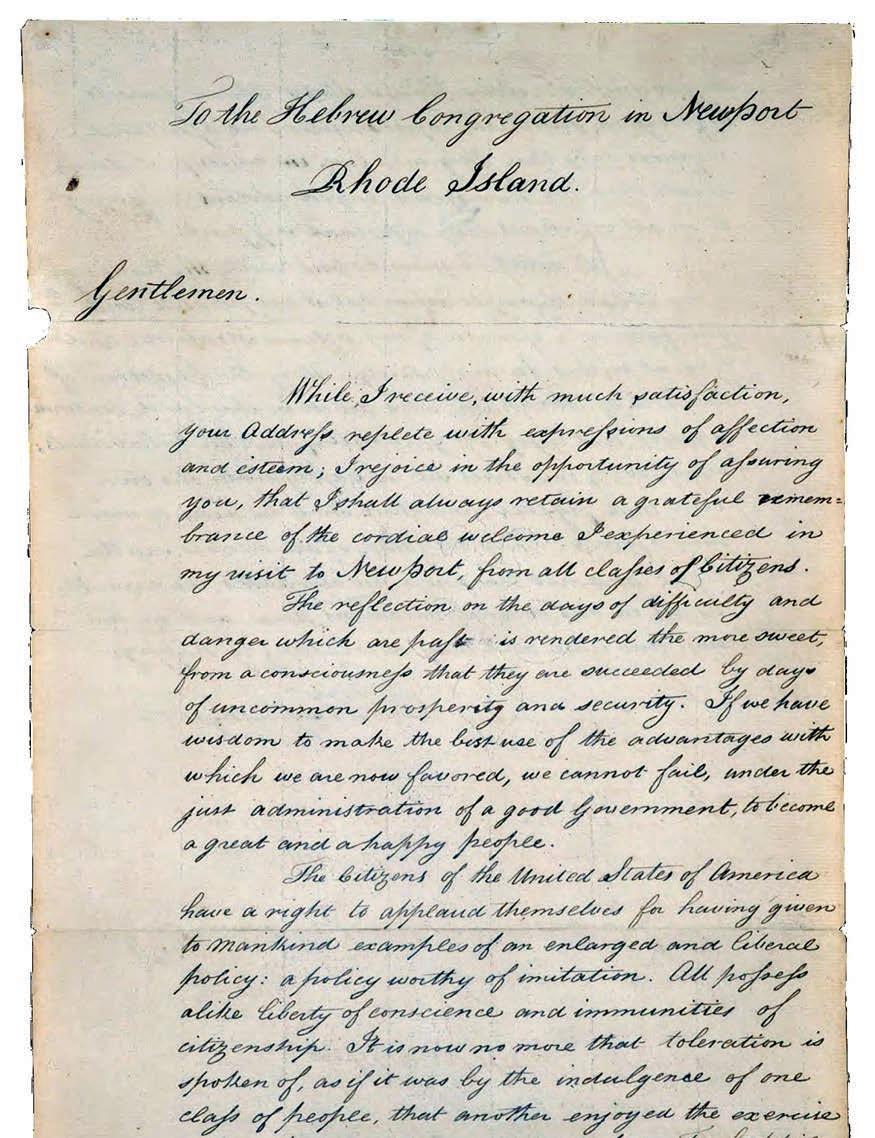 To the Hebrew Congregation in Newport
Rhode Island.
Gentlemen.
While, I receive, with much satisfaction,
your Address replete with expressions of affection
and esteem; I rejoice in the opportunity of assuring
you, that I shall always retain a grateful remem=
brance of the cordial welcome I experienced in
my visit to Newport, from all classes of Citizens.
The reflection on the days of difficulty and
danger which are past is rendered the more sweet,
from a consciousness that they are succeeded by days
of uncommon prosperity and security. If we have
wisdom to make the best use of the advantages with
which we are now favored, we cannot fail, under the
just administration of a good Government, to become
a great and a happy people.
The Citizens of the United States of America
have a right to applaud themselves for having given
to mankind examples of an enlarged and liberal
policy: a policy worthy of imitation. All possess
alike liberty of conscience and immunities of
citizenship. It is now no more that toleration is
spoken of, as if it was by the indulgence of one
class of people, that another enjoyed the exercise